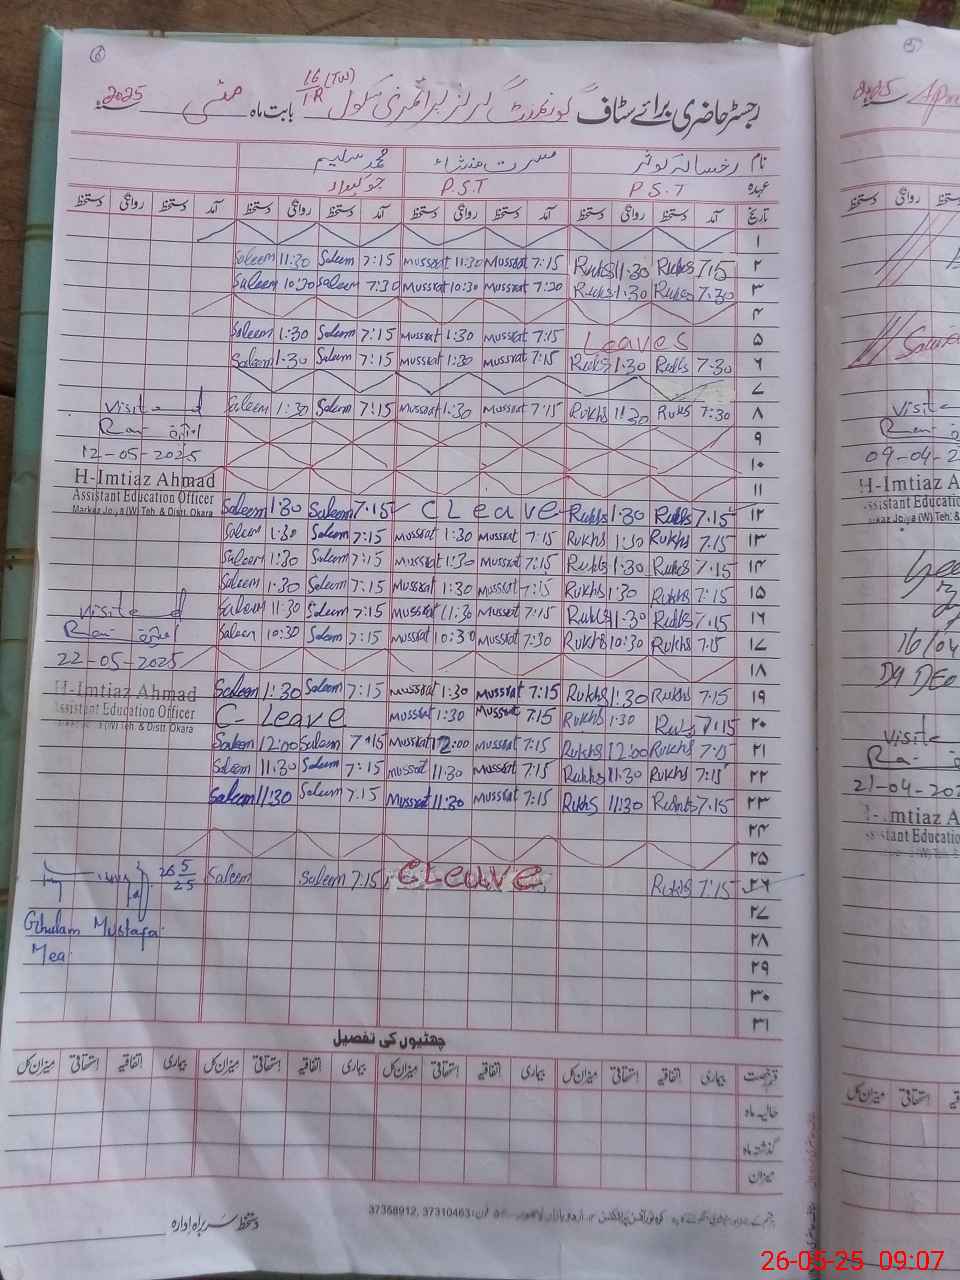 2025 بابت ماہ مئی رجسٹر حاضری برائے سٹاف گورنمنٹ گرلز پرائمری سکول 16/1R (TW)
نام رخسانہ کوثر مسرت محمد سلیم
عہدہ P.S.T P.S.T چوکیدار
تاریخ آمد دستخط روانگی دستخط آمد دستخط روانگی دستخط آمد دستخط روانگی دستخط آمد دستخط روانگی دستخط
۱
Saleem 11:30 Saleem 7:15 Mussrat 11:30 Mussrat 7:15 Rukhs 11:30 Rukhs 7:15 ۲
Saleem 10:30 Saleem 7:30 Mussrat 10:30 Mussrat 7:30 Rukhs 1:30 Rukhs 7:30 ۳
۴
Saleem 1:30 Saleem 7:15 Mussrat 1:30 Mussrat 7:15 Leaves ۵
Saleem 1:30 Saleem 7:15 Mussrat 1:30 Mussrat 7:15 Rukhs 1:30 Rukhs 7:30 ۶
۷
Visited Saleem 1:30 Saleem 7:15 Mussrat 1:30 Mussrat 7:15 Rukhs 1:30 Rukhs 7:30 ۸
۹
12-05-2025 ۱۰
H-Imtiaz Ahmad ۱۱
Assistant Education Officer
Markaz Joyia (W) Teh. & Distt. Okara
Saleem 1:30 Saleem 7.15 C Leave Rukhs 1:30 Rukhs 7.15 ۱۲
Saleem 1:30 Saleem 7:15 Mussrat 1:30 Mussrat 7:15 Rukhs 1:30 Rukhs 7.15 ۱۳
Saleem 1:30 Saleem 7:15 Mussrat 1:30 Mussrat 7:15 Rukhs 1:30 Rukhs 7.15 ۱۴
Saleem 1:30 Saleem 7:15 Mussrat 1:30 Mussrat 7:15 Rukhs 1:30 Rukhs 7:15 ۱۵
Visited Saleem 11:30 Saleem 7:15 Mussrat 11:30 Mussrat 7:15 Rukhs 11:30 Rukhs 7:15 ۱۶
Saleem 10:30 Saleem 7:15 Mussrat 10:30 Mussrat 7:30 Rukhs 10:30 Rukhs 7.15 ۱۷
22-05-2025 ۱۸
H-Imtiaz Ahmad Saleem 1:30 Saleem 7:15 Mussrat 1:30 Mussrat 7:15 Rukhs 1:30 Rukhs 7:15 ۱۹
Assistant Education Officer C- Leave Mussrat 1:30 Mussrat 7:15 Rukhs 1:30 Rukhs 7:15 ۲۰
(W) Teh. & Distt. Okara
Saleem 12:00 Saleem 7:15 Mussrat 12:00 Mussrat 7:15 Rukhs 12:00 Rukhs 7:15 ۲۱
Saleem 11:30 Saleem 7:15 Mussrat 11:30 Mussrat 7:15 Rukhs 11:30 Rukhs 7:15 ۲۲
Saleem 11:30 Saleem 7.15 Mussrat 11:30 Mussrat 7:15 Rukhs 11:30 Rukhs 7.15 ۲۳
۲۴
۲۵
26 5/25 Saleem Saleem 7.15 CLeave Rukhs 7:15 ۲۶
۲۷
Ghulam Mustafa ۲۸
Mea ۲۹
۳۰
۳۱
چھٹیوں کی تفصیل
قسم رخصت بیماری اتفاقیہ استحقاقی میزان کل بیماری اتفاقیہ استحقاقی میزان کل بیماری اتفاقیہ استحقاقی میزان کل بیماری اتفاقیہ استحقاقی میزان کل
حالیہ ماہ
گذشتہ ماہ
میزان
دستخط سربراہ ادارہ
37368912, 37310463
2025
Visited
09-04-2
H-Imtiaz A
ssistant Education
16/04
Dy DEO
Visite
21-04-202
-Imtiaz A
stant Educatio
استحقاقی میزان کل
26-05-25 09:07